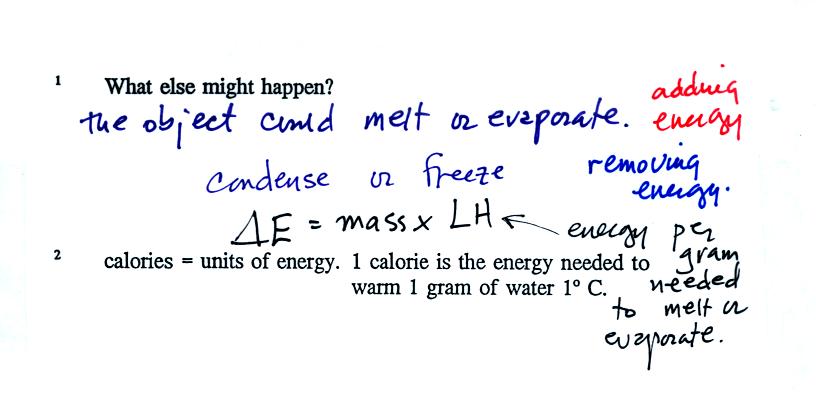 1 What else might happen?
the object could melt or evaporate. adding energy
condense or freeze removing energy.
ΔE = mass x LH ← energy per gram needed to melt or evaporate.
2 calories = units of energy. 1 calorie is the energy needed to
warm 1 gram of water 1° C.